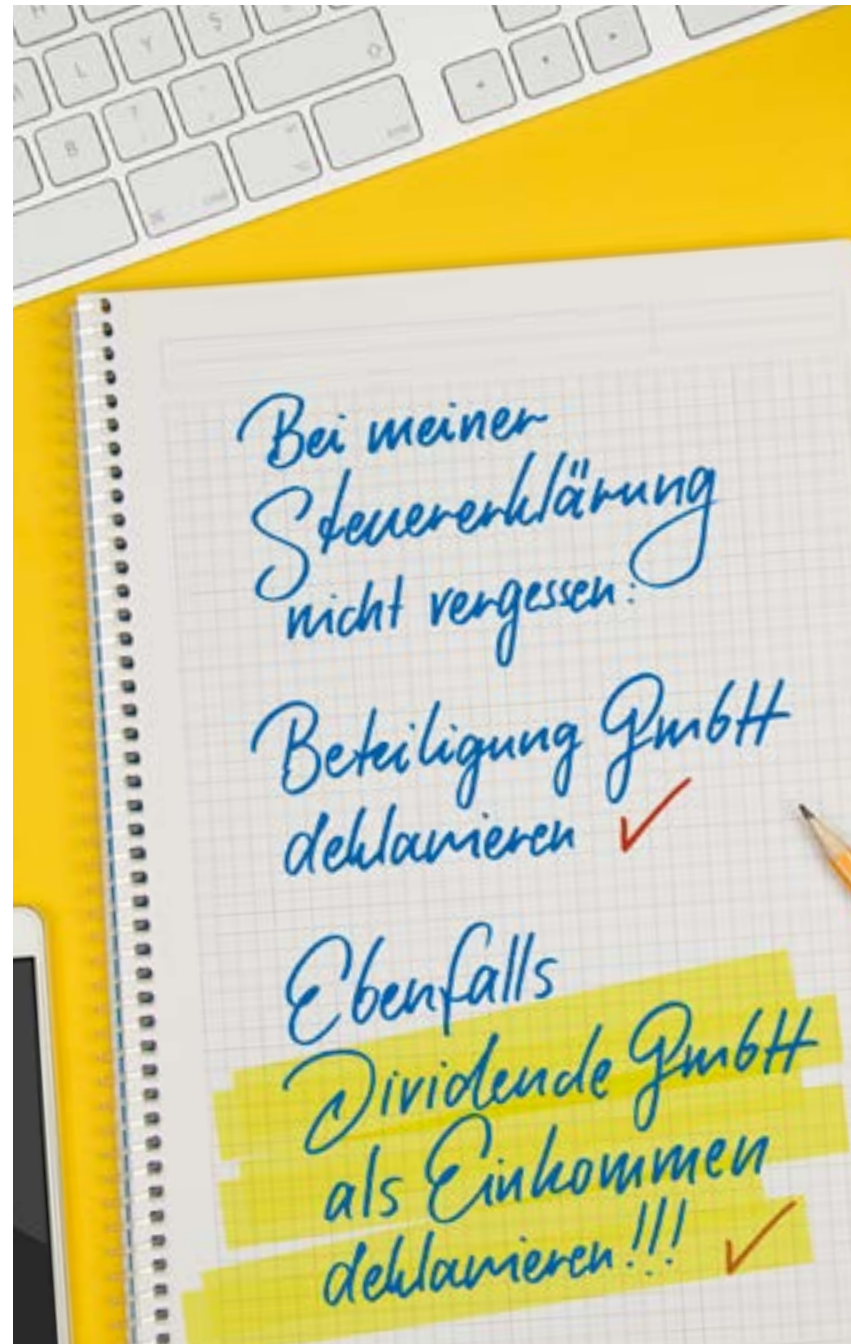 Bei meiner
Steuererklärung
nicht vergessen:
Beteiligung GmbH
deklarieren ✓
Ebenfalls
Dividende GmbH
als Einkommen
deklarieren!!! ✓